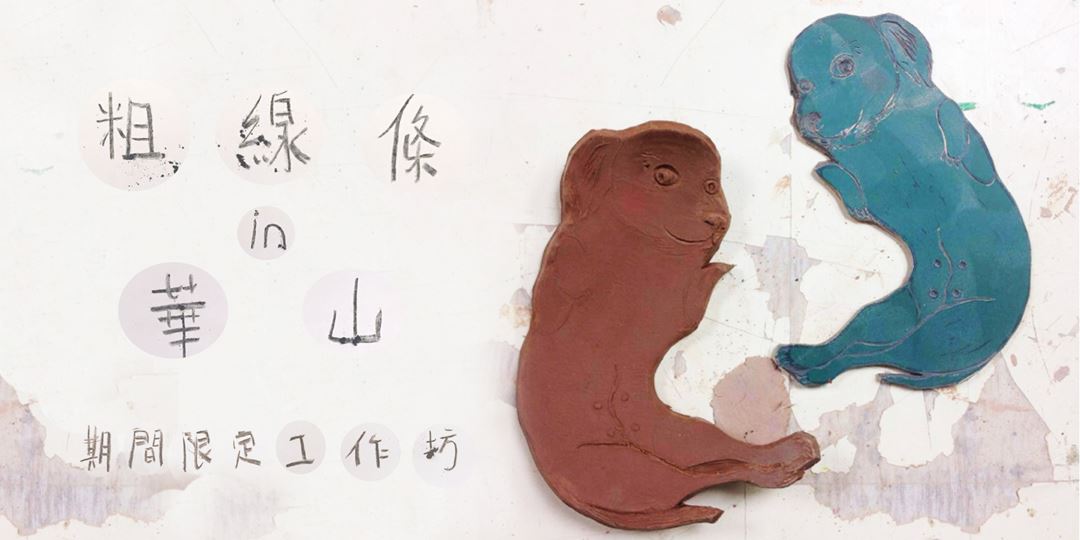 粗線條
in
華山
期間限定工作坊